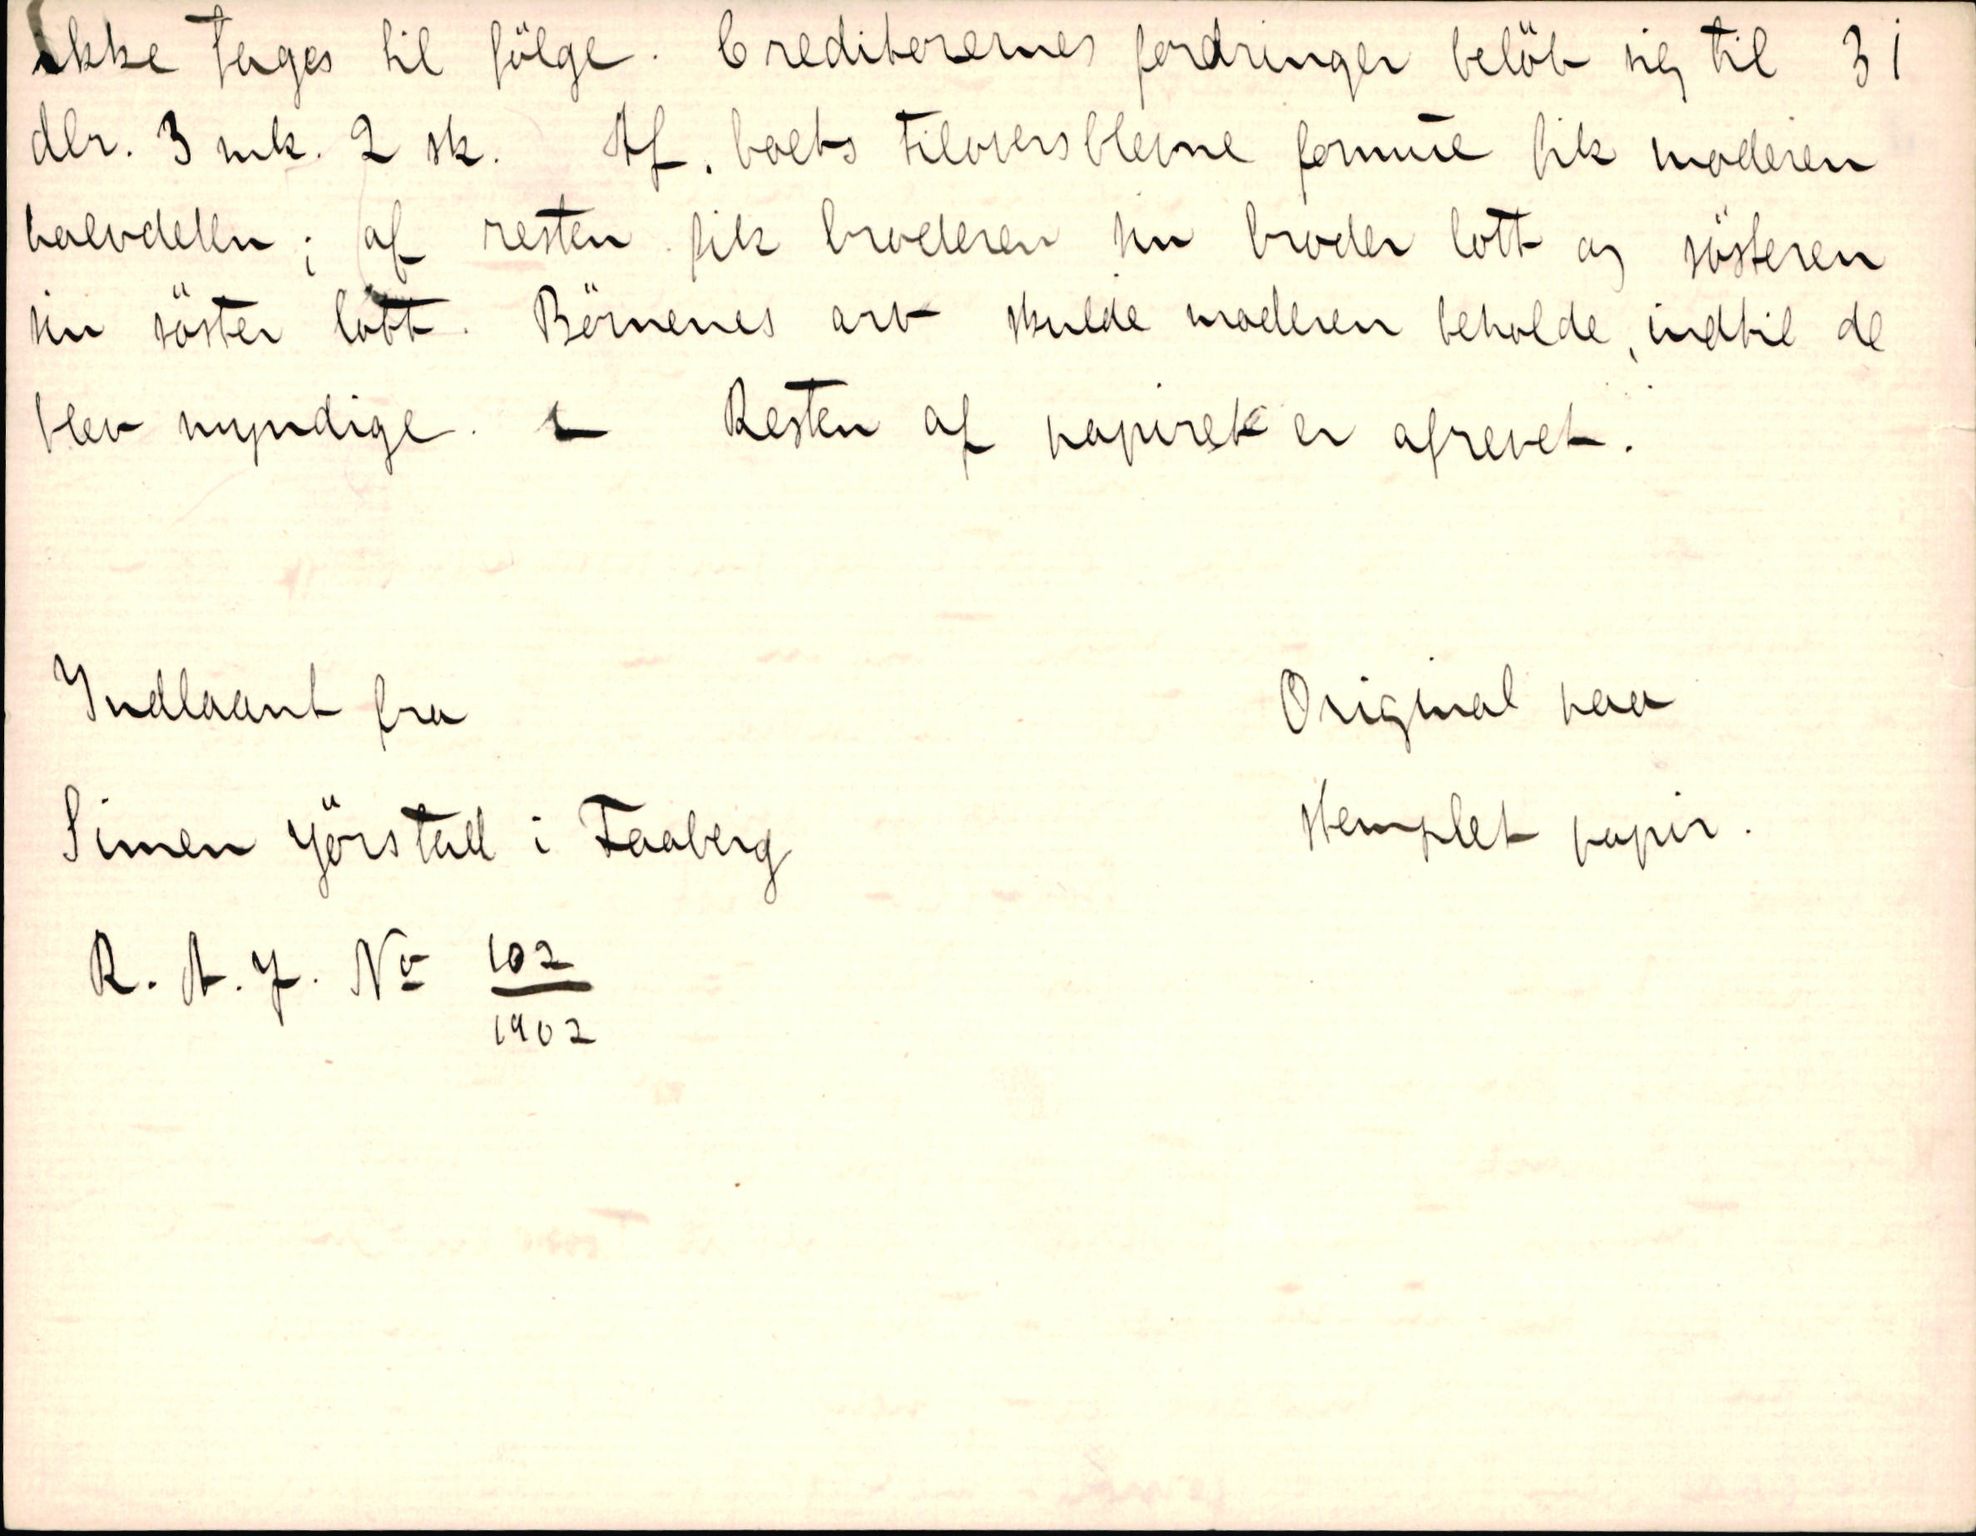 ikke tages til fölge. Creditorernes fordringer belöb sig til 31
dlr. 3 mk. 2 sk. Af boets tiloversblevne formue fik moderen
halvdelen; af resten fik broderen sin broder lott og sösteren
sin söster lott. Börnenes arv skulde moderen beholde, indtil de
blev myndige. — Resten af papiret er afrevet.
Indlaant fra
Original paa
Simen Jörstad i Faaberg
stemplet papir.
R. A. J. No 102
1902